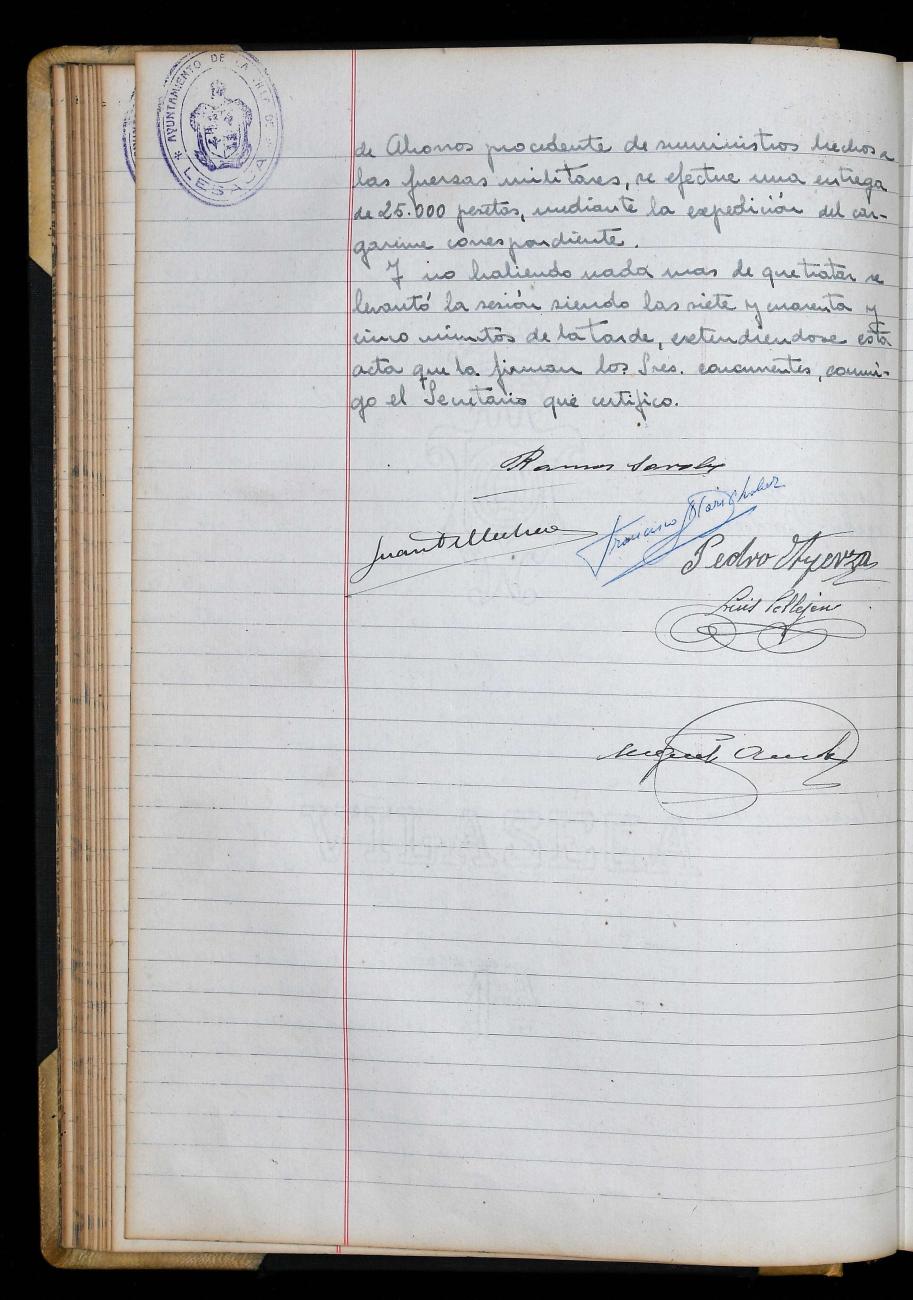 AYUNTAMIENTO DE LA VILLA DE
LESACA
de Ahorros procedente de suministros hechos a
las fuerzas militares, se efectue una entrega
de 25.000 pesetas, mediante la expedición del car-
gareme correspondiente.
Y no habiendo nada mas de que tratar se
levantó la sesión siendo las siete y cuarenta y
cinco minutos de la tarde, extendiendose esta
acta que la firman los Sres. concurrentes, conmi-
go el Secretario que certifico.
Ramos
Francisco
Juan
Pedro
Luis Pellejero
Miguel